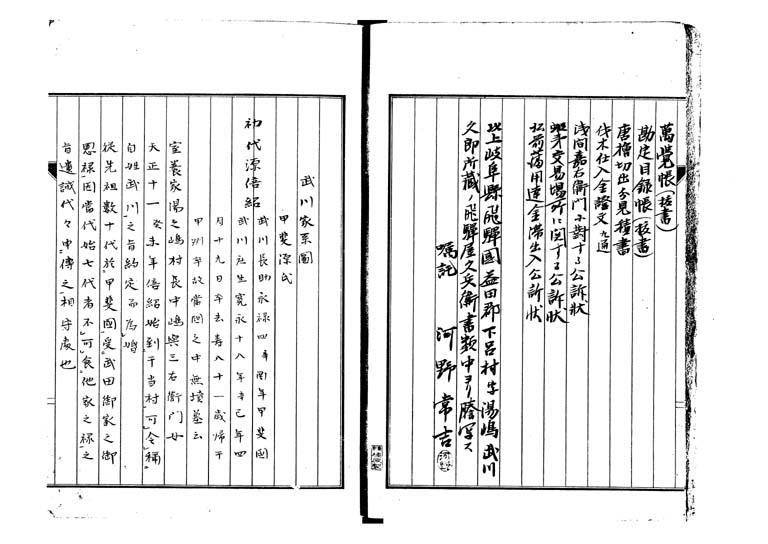 萬覺帳(抜書)
勘定目録帳(抜書)
唐檜切出分見積書
伐木仕入金證文九通
浅間嘉右衛門ニ對スル公訴状
蝦夷交易場所ニ関スル公訴状
松前藩用達金滞出入公訴状
以上岐阜縣飛驒國益田郡下呂村字湯嶋武川
久郎所藏ノ飛驒屋久兵衛書類中ヨリ謄写ス
嘱託 河野常吉
武川家系圖
甲斐源氏
初代源倍紹
武川長助永禄四辛酉年甲斐國
武川庄生寛永十八年辛巳年四
月十九日卒去壽八十一歳帰于
甲州卒故當國之中無墳墓云
室養家湯之嶋村長中嶋與三右衛門女
天正十一癸未年倍紹始到于当村可令稱
自姓武川之旨約定而為婚
從先祖数十代於甲斐國受武田御家之御
恩禄因當代始七代者不可食他家之禄之
旨遺誡代々申傳之相守處也